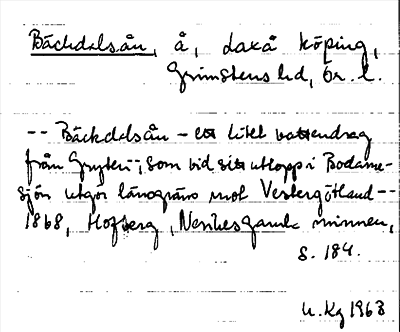 Bäckdalsån, å, Laxå köping,
Grimstens hd, Ör. l.
-- Bäckdalsån - ett litet vattendrag
från Gryten --, som vid sitt utlopp i Bodarne-
sjön utgör länsgräns mot Vestergötland --
1868, Hofberg, Nerikes gamla minnen,
s. 184.
1968